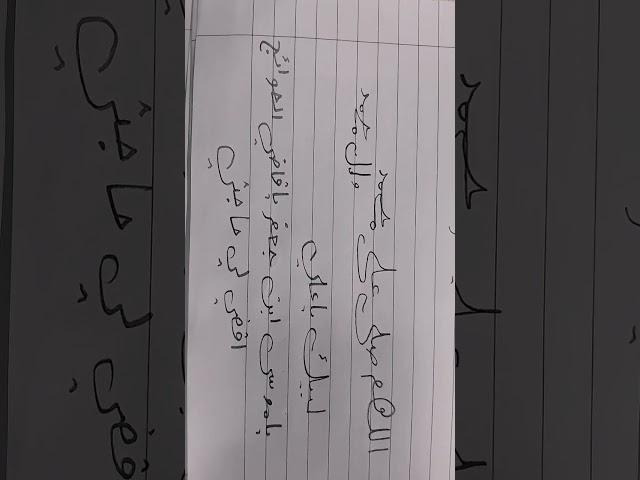 اللهم صل على محمد
وال محمد
لبيك ياعلي
ياموسى ابن جعفر ياقاضي الحوائج
اقضي لي حاجتي